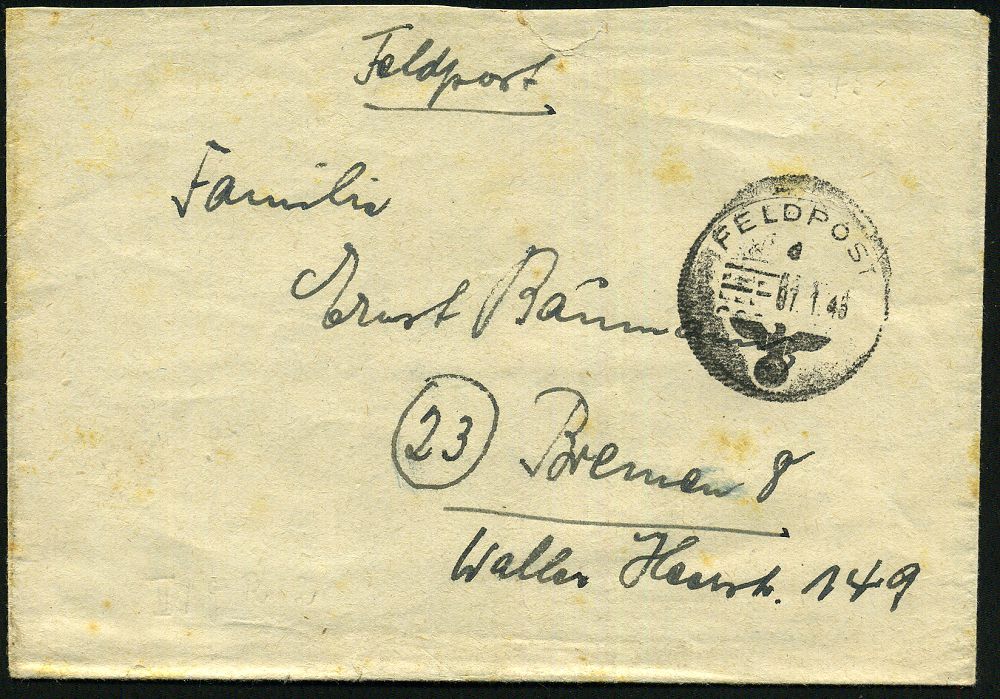 Feldpost
Familie
Ernst Bäumann
FELDPOST
a
1.45
23 Bremen 8
Waller Heerstr. 149